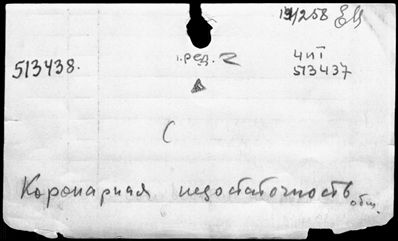 19/258
513438. 1.ред. 2 4 пI
513437
С
Коронарная недостаточность общ.